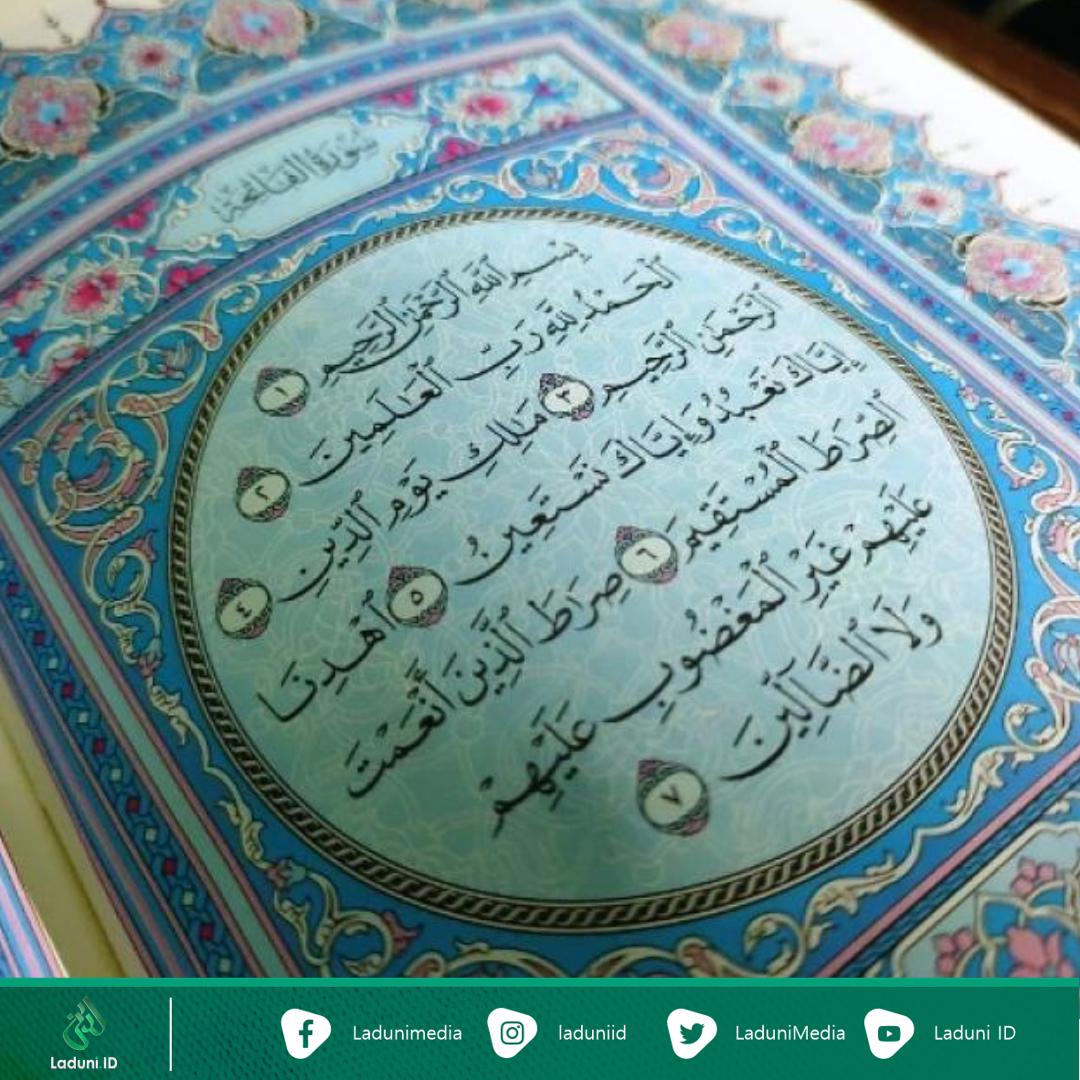 سُورَةُ الفَاتِحَةِ
بِسْمِ ٱللَّهِ ٱلرَّحْمَٰنِ ٱلرَّحِيمِ ١
ٱلْحَمْدُ لِلَّهِ رَبِّ ٱلْعَٰلَمِينَ ٢
ٱلرَّحْمَٰنِ ٱلرَّحِيمِ ٣ مَٰلِكِ يَوْمِ ٱلدِّينِ ٤
إِيَّاكَ نَعْبُدُ وَإِيَّاكَ نَسْتَعِينُ ٥ ٱهْدِنَا
ٱلصِّرَٰطَ ٱلْمُسْتَقِيمَ ٦ صِرَٰطَ ٱلَّذِينَ أَنْعَمْتَ
عَلَيْهِمْ غَيْرِ ٱلْمَغْضُوبِ عَلَيْهِمْ
وَلَا ٱلضَّآلِّينَ ٧
Laduni.ID
Ladunimedia
laduniid
LaduniMedia
Laduni ID